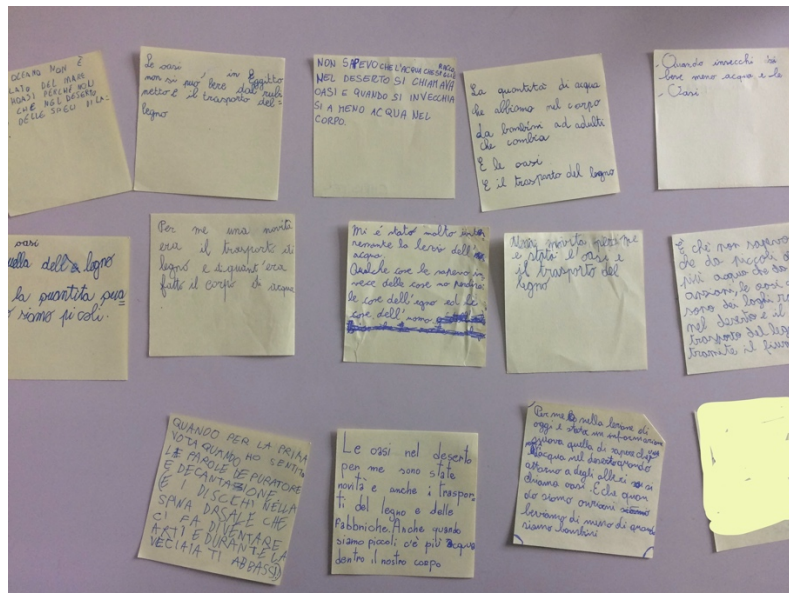 OCEANO NON È
LATO DEL MARE
PERCHÉ NOLI
CHE NEL DESERTO
DELLE
Le oasi
in Egitto
non si può bere dal rubi
netto e il trasporto del=
legno
NON SAPEVO CHE L'ACQUA CHE
NEL DESERTO SI CHIAMAVA
OASI E QUANDO SI INVECCHIA
SI A MENO ACQUA NEL
CORPO.
La quantità di acqua
che abbiamo nel corpo
da bambini ad adulti
che cambia
E le oasi
E il trasporto del legno
- Quando invecchi hai
meno acqua e le
- Oasi
oasi
quella dell legno
la quantita qua
siamo piccoli.
Per me una novità
era il trasporto di
legno e di quant'era
fatto il corpo di acqua
Mi è stato molto inte
la
acqua.
Qualche cose le sapevo in
vece delle cose no
le cose dell' ed le
cose dell'uomo
Una novità per me
è stata l'oasi e
il trasporto del
legno
È che non sapevo
che da piccoli
più acqua che da
anziani, le oasi
sono dei
nel deserto e il
trasporto del leg
tramite il fiu
QUANDO PER LA PRIMA
VOTA QUANDO HO SENTITO
LE PAROLE DEPURATORE
E DECANTAZIONE
E I DISCHI NELLA
SPINA DRSALE CHE
CI FA DIVENTARE
ARTI E DURANTE LA
VECIAIA TI ABBASSI
Le oasi nel deserto
per me sono state
novità e anche i traspor
ti del legno e delle
Fabbriche. Anche quando
siamo piccoli c'è più acqua
dentro il nostro corpo
Per me nella lezione di
oggi è stata un informazione
nuova quella di sapere che
l'acqua nel deserto
attorno a degli alberi si
chiama oasi. E che quan
do siamo anziani
beviamo di meno di quando
siamo bambini